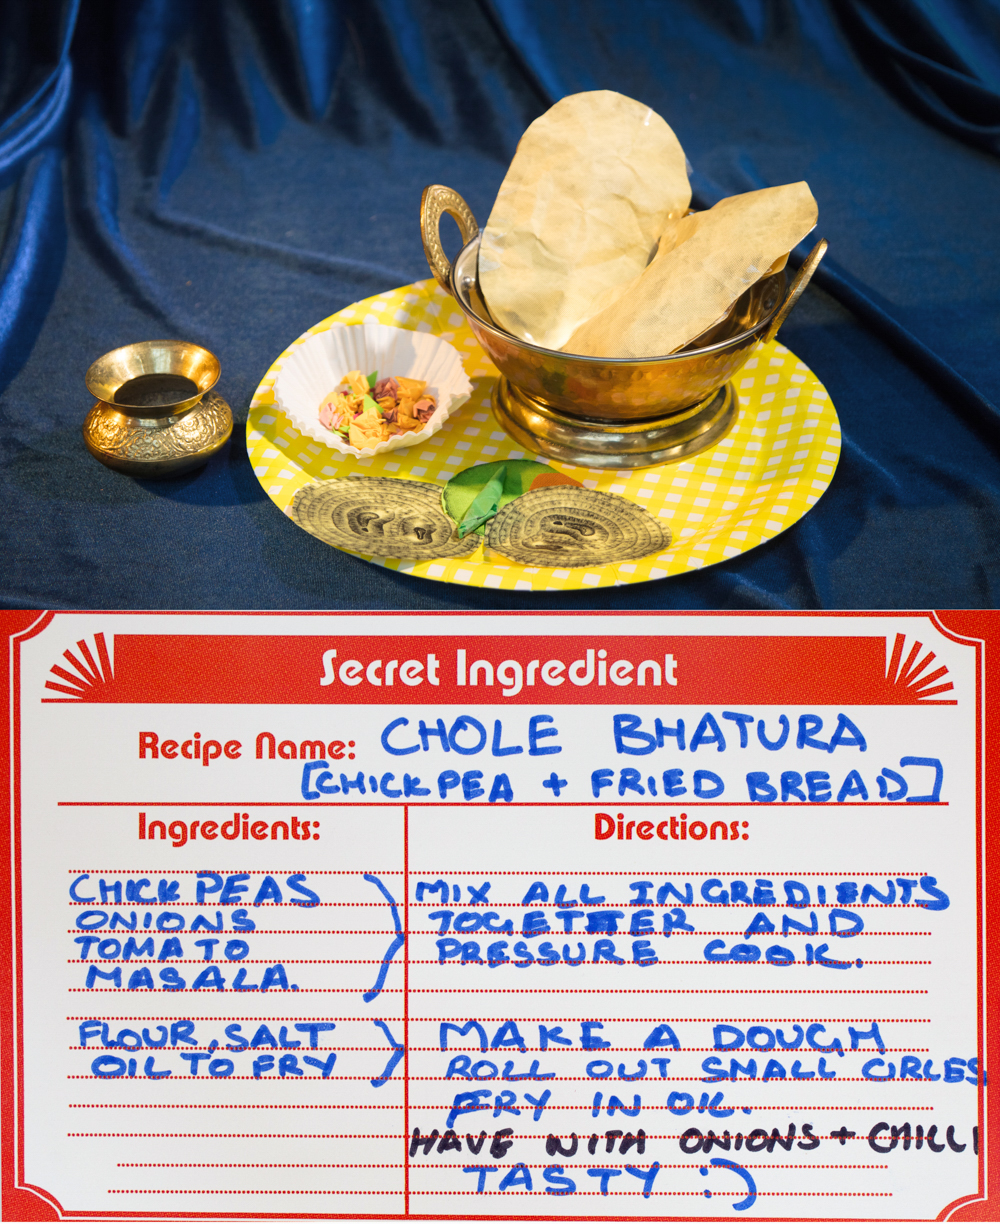 Secret Ingredient
Recipe Name: CHOLE BHATURA
[CHICKPEA + FRIED BREAD]
Ingredients:
CHICK PEAS
ONIONS
TOMATO
MASALA.
FLOUR, SALT
OIL TO FRY
Directions:
MIX ALL INGREDIENTS
TOGETHER AND
PRESSURE COOK.
MAKE A DOUGH
ROLL OUT SMALL CIRCLES
FRY IN OIL.
HAVE WITH ONIONS + CHILLI
TASTY :)